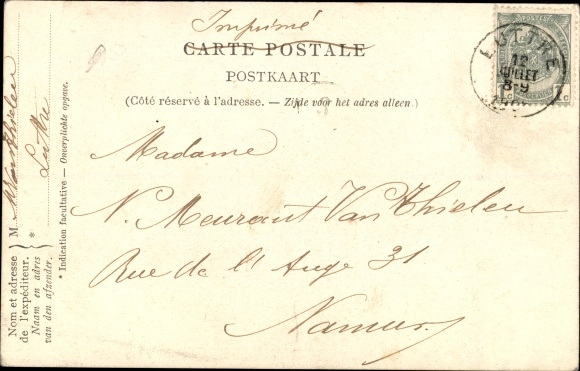 Imprimé
CARTE POSTALE
POSTKAART
(Côté réservé à l'adresse. — Zijde voor het adres alleen.)
LUTTRE
12
JUILLET
8-9
Madame
N. Meurant Van Thielen
Rue de l'Ange 31
Namur
M. Van Thielen
Luttre
Nom et adresse
de l'expéditeur.
Naam en adres
van den afzender.
*
* Indication facultative — Onverplichte opgave.